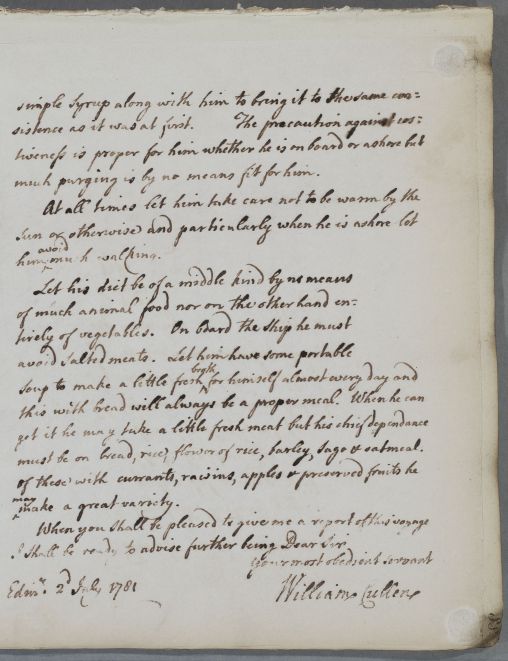 simple Syrup along with him to bring it to the same con=
sistence as it was at first. The precaution against cos=
tiveness is proper for him whether he is on board or ashore but
much purging is by no means fit for him.
At all times let him take care not to be warm by the
Sun or otherwise and particularly when he is ashore let
him avoid much walking.
Let his diet be of a middle kind by no means
of much animal food nor on the other hand en=
tirely of vegetables. On board the ship he must
avoid salted meats. Let him have some portable
soup to make a little fresh broth for himself almost every day and
this with bread will always be a proper meal. When he can
get it he may take a little fresh meat but his chief dependance
must be on bread, rice, flower of rice, barley, Sago & oatmeal.
of these with currants, raisins, apples & preserved fruits he
may make a great variety.
When you shall be pleased to give me a report of this voyage
I shall be ready to advise further being Dear Sir
Your most obedient servant
Edinr. 2d July 1781 William Cullen